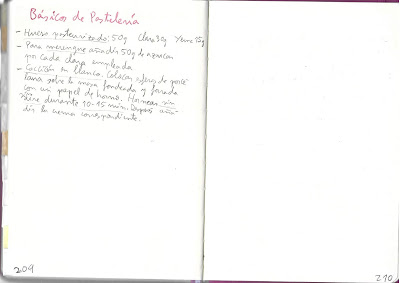 Básicos de Pastelería
- Huevo pasteurizado: 50g Clara 30g Yema 15g
- Para merengue añadir 50g de azúcar
por cada clara empleada
- Cocción en blanco. Colocar peso
sobre la masa fondeada y forrada
con un papel de horno. Hornear sin
durante 10-15 min. Después aña-
dir la crema correspondiente.
209
210